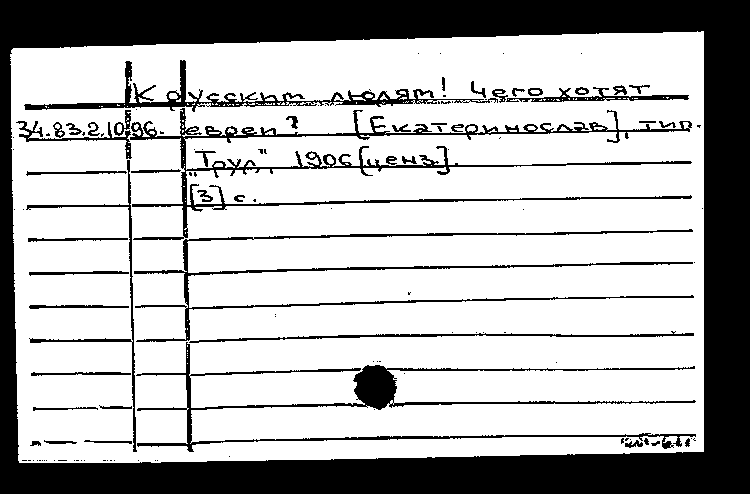 К русским людям! Чего хотят
34.83.2.1096. евреи? [Екатеринослав], тип.
„Труд", 1906 [ценз].
[3] с.